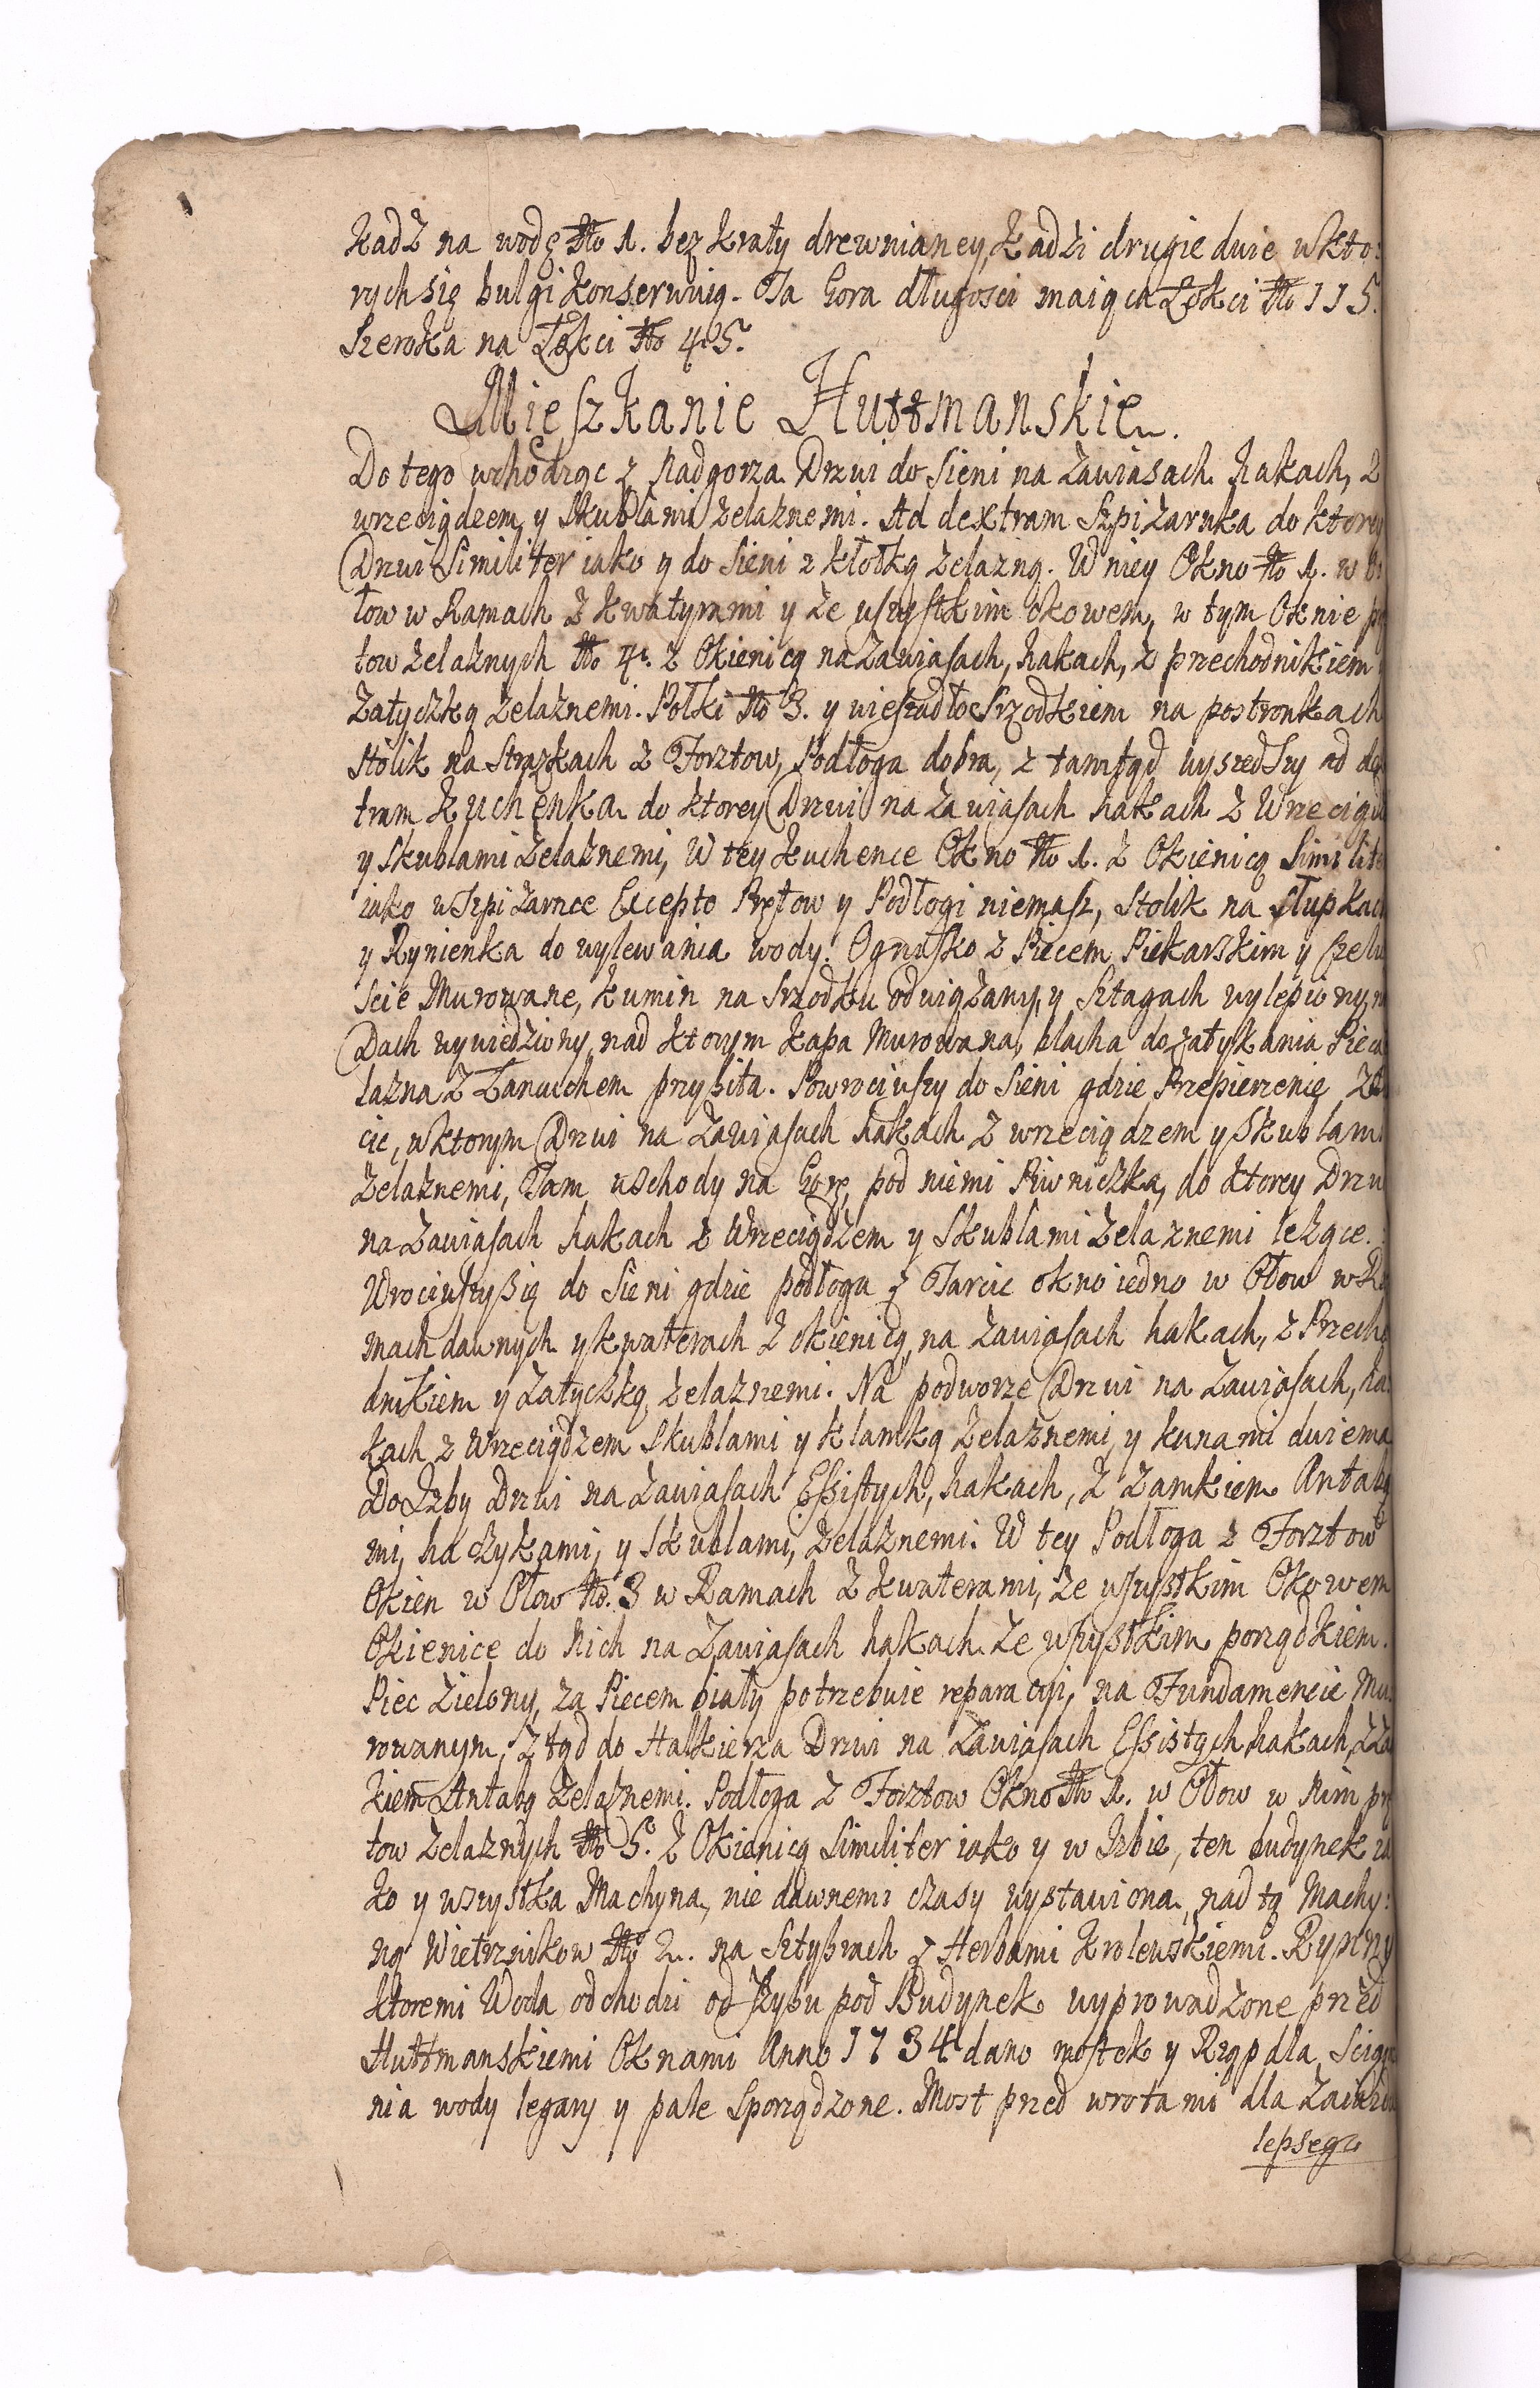 Kadź na wodę No 1. bez kraty drewnianey, Kadzi drugie dwie w kto:
rych się bulgi konserwuią. Ta Gora długosci maiąca Łokci No 115.
Szeroka na Łokci No 45.
Mieszkanie Huttmanskie.
Do tego wchodząc z Nadgorza Drzwi do Sieni na Zawiasach hakach, z
wrzeciądzem, y Skublami żelaznemi. Ad dextram Szpiżarnka do ktorey
Drzwi Similiter iako y do Sieni z kłotką żelazną. W niey Okno No 1. w O
łow w Ramach z kwatyrami y ze wszystkim okowem, w tym Oknie prę
tow żelaznych No 4. z Okienicą na Zawiasach, hakach, z przechodnikiem y
Zatyczką żelaznemi. Połki No 3. y wieszadło Srzodkiem na postronkach
Stolik na Strazkach z Forztow, Podłoga dobra, z tamtąd wyszedszy ad dex
tram Kuchenka do ktorey Drzwi na Zawiasach hakach z Wrzeciąd
y Skublami żelaznemi, W tey Kuchence Okno No 1. z Okienicą Similite
iako w Szpiżarnce Excepto Prętow y Podłogi niemasz, Stolik na Słupkach
y Rynienka do wylewania wody. Ognisko z Piecem Piekarskim y Czelu
scie Murowane, Kumin na Srzodku odwiązany, y Sztagach wylepiony, na
Dach wywiedziony, nad ktorym kapa Murowana, blacha do zatykania Pieca
lazna z Łancuchem przybita. Powrociwszy do Sieni gdzie Przepierzenie z
cic, w ktorym Drzwi na Zawiasach hakach z wrzeciądzem y Skublami
żelaznemi, Tam wschody na Gorę, pod niemi Piwniczka, do ktorey Drzwi
na Zawiasach hakach z Wrzeciądzem y Skublami żelaznemi leżące.
Wrociwszy się do Sieni gdzie podłoga z Tarcic okno iedno w Ołow w Ra
mach dawnych y kwaterach z okienicą, na zawiasach hakach, z Przecho
dnikiem y Zatyczką żelaznemi. Na podworze Drzwi na Zawiasach, ha
kach z Wrzeciądzem Skublami y klamką żelaznemi, y kunami dwiema
Do Izby Drzwi na Zawiasach Essistych, hakach, z Zamkiem Antaba
mi, haczykami, y Skublami, żelaznemi. W tey Podłoga z Forztow
Okien w Ołow No. 3 w Ramach z kwaterami, ze wszystkim Okowem
Okienice do Nich na Zawiasach hakach ze wszystkim porządkiem.
Piec Zielony, za Piecem biały potrzebuie reparacyi, na Fundamencie Mu
rowanym, ztąd do Halkierza Drzwi na Zawiasach Essistych hakach, z Zam
kiem Antabą żelaznemi. Podłoga z Forztow Okno No 1. w Ołow w Nim prę
tow żelaznych No 5. z Okienicą Similiter iako y w Izbie, ten budynek ia
ko y wszystka Machyna, nie dawnemi czasy wystawiona, nad tą Machy:
ną Wietrznikow No 2. na Sztybrach z Herbami Krolewskiemi. Rynny
ktoremi Woda odchodzi od Szybu pod Budynek wyprowadzone przed
Huttmanskiemi Oknami Anno 1734 dano mostek y Rząp dla Sciąga
nia wody legary y pale Sporządzone. Most przed wrotami dla Zaiazdu
lepszego